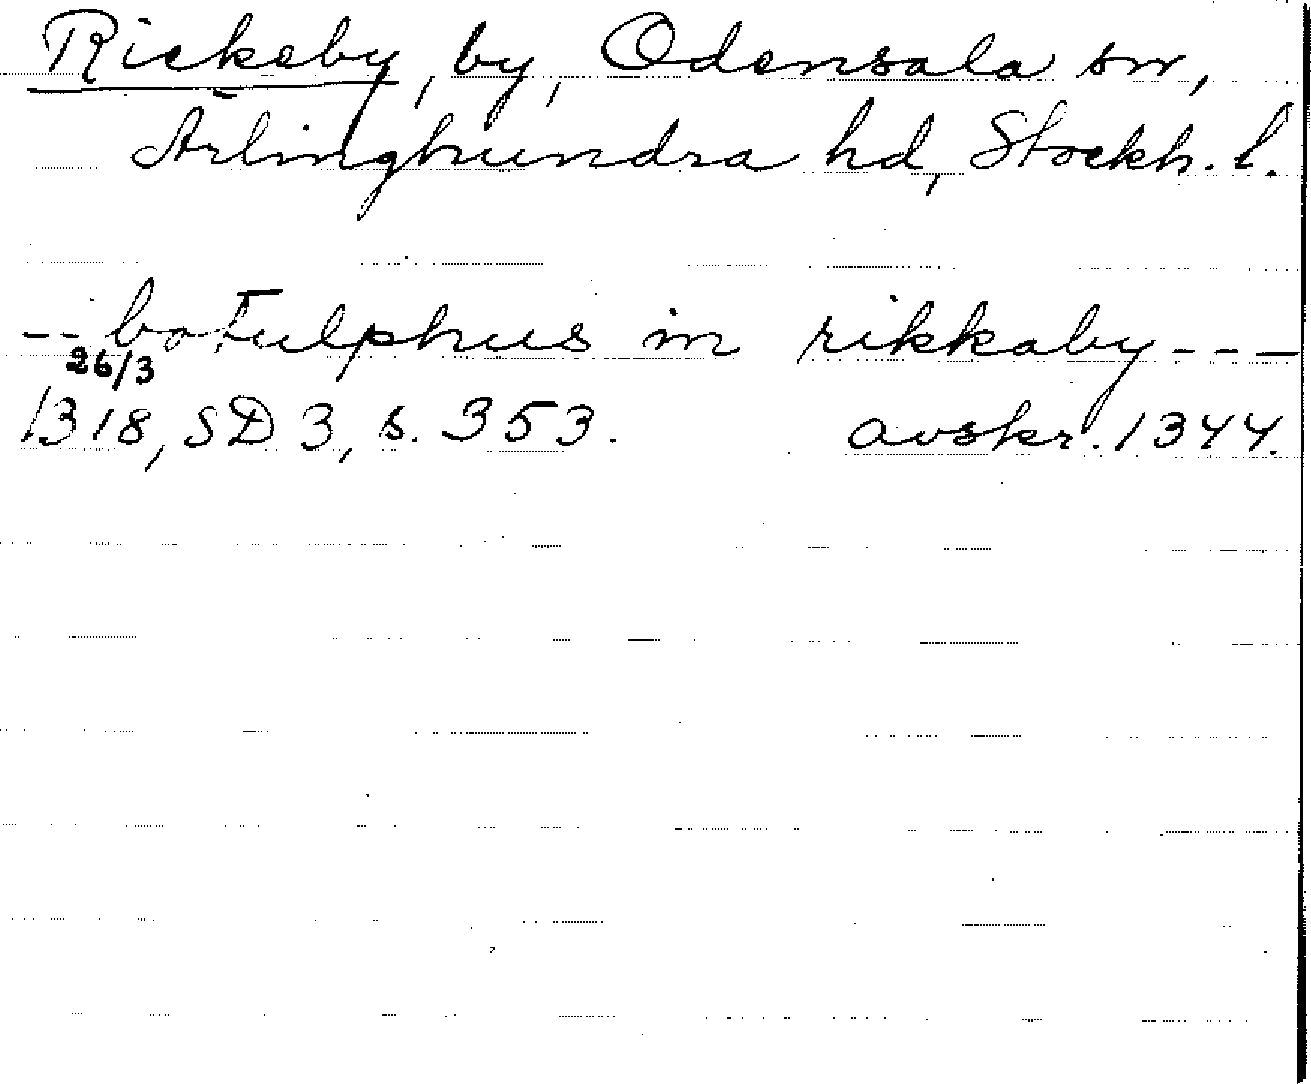 Rickeby, by, Odensala sn,
Ärlinghundra hd, Stockh. l.
-- botulphus in rikkaby ---
26/3
1318, SD 3, s. 353. avskr. 1344.